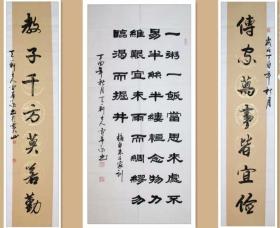 傳家萬事皆宜儉
歲在丁酉年秋月
一粥一飯當思來處不
易半絲半縷恒念物力
維艱宜未雨而綢繆勿
臨渴而掘井
摘自朱子家訓
丁酉年秋月
教子千方莫若勤